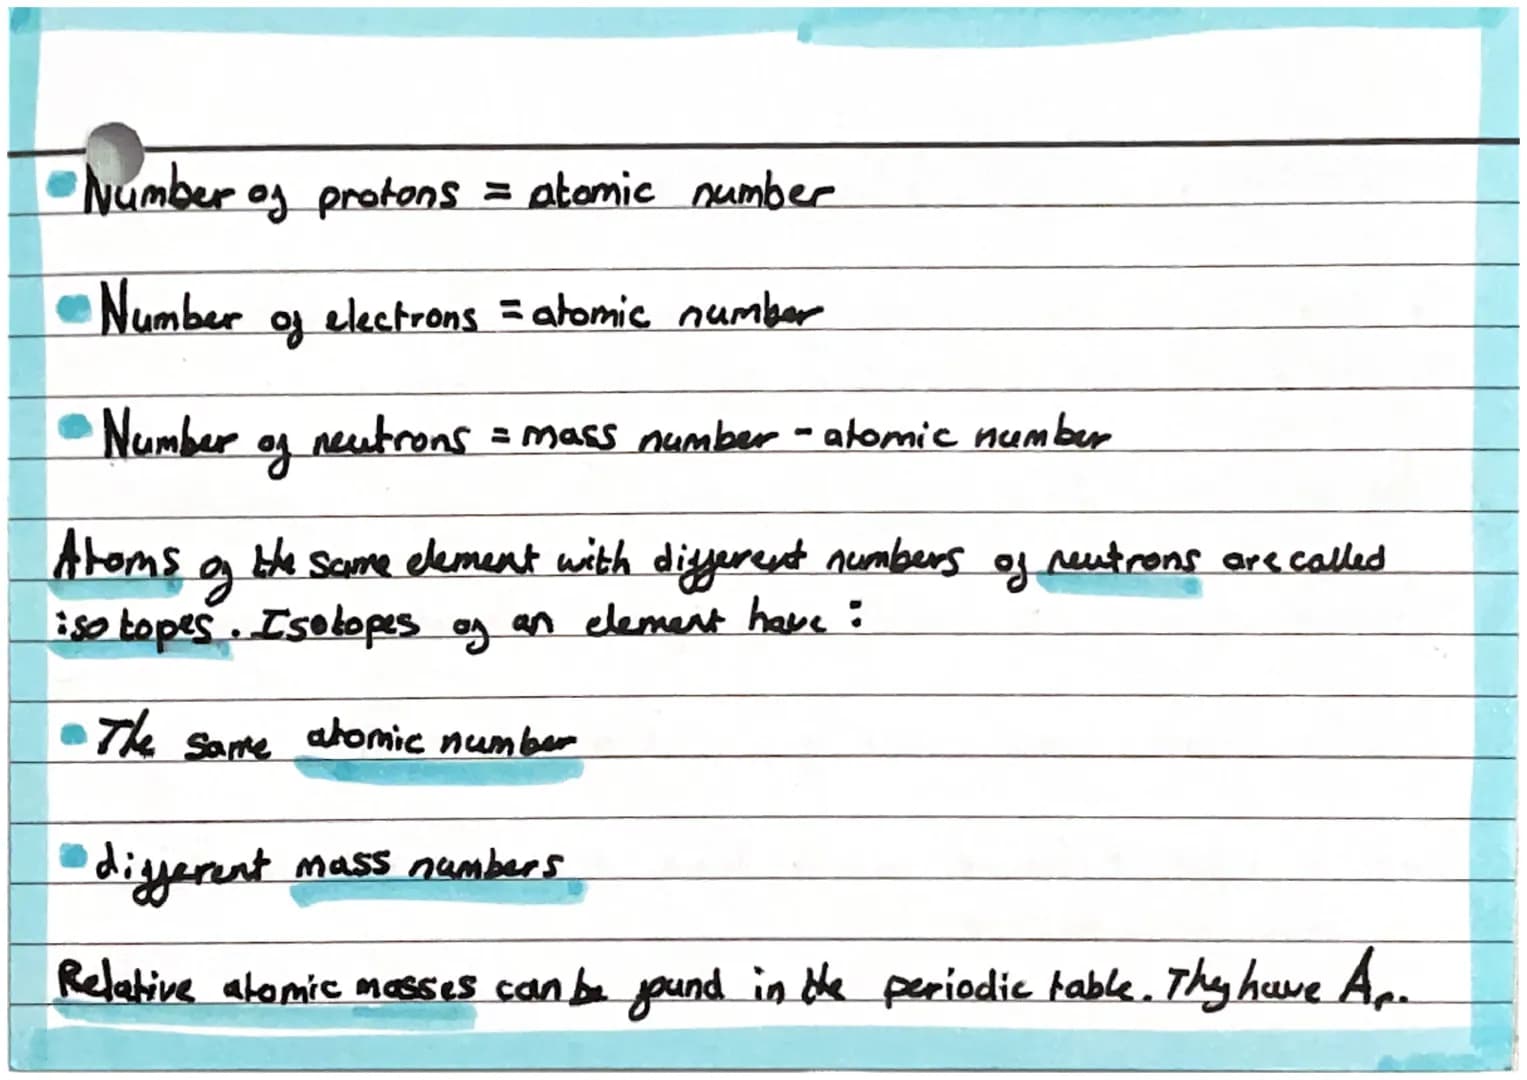 Number of protons = atomic number
Number of electrons = atomic number
Number of neutrons = mass number - atomic number
Atoms of the same element with different numbers of neutrons are called
isotopes. Isotopes of an element have :
The same atomic number
different mass numbers
Relative atomic masses can be found in the periodic table. They have Ar.